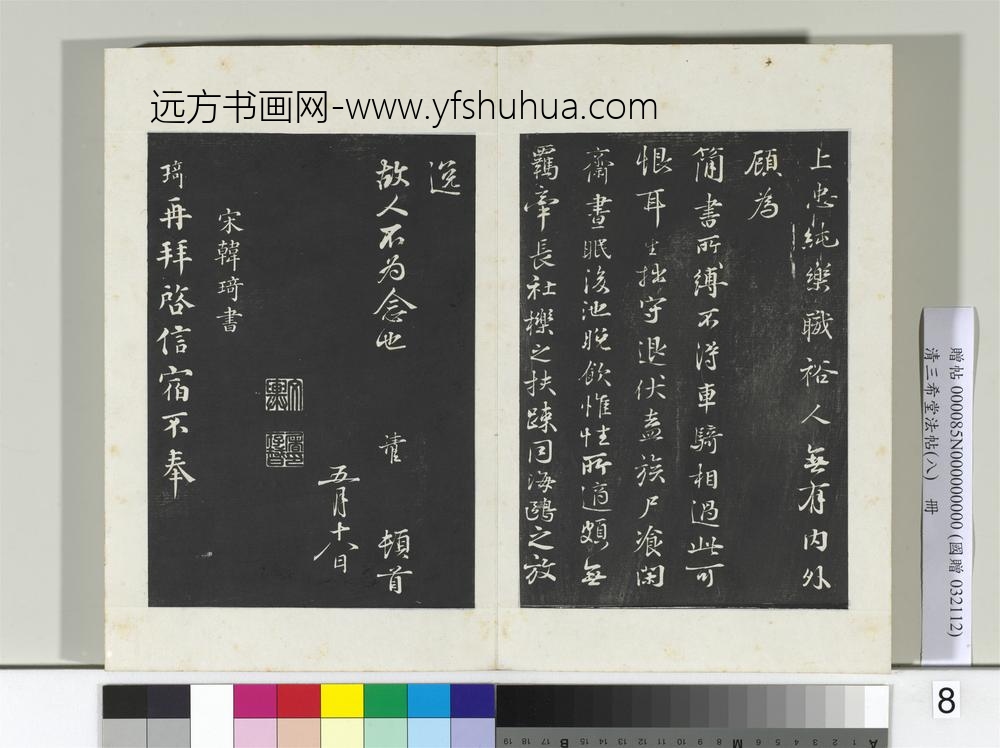 远方书画网-www.yfshuhua.com
上忠純樂職裕人無有內外
顧為
簡書所縛不得車騎相過此可
恨耳
拙守退伏盍族尸飡閑
齋晝眠後池晚飲惟性所適頗無
羈牽長社櫟之扶踈同海鷗之放
逸
故人不为念也 頓首
五月十八日
宋韓琦書
琦再拜啓信宿不奉
贈帖 000085N000000000 (國贈 032112)
清三希堂法帖(八) 冊
8